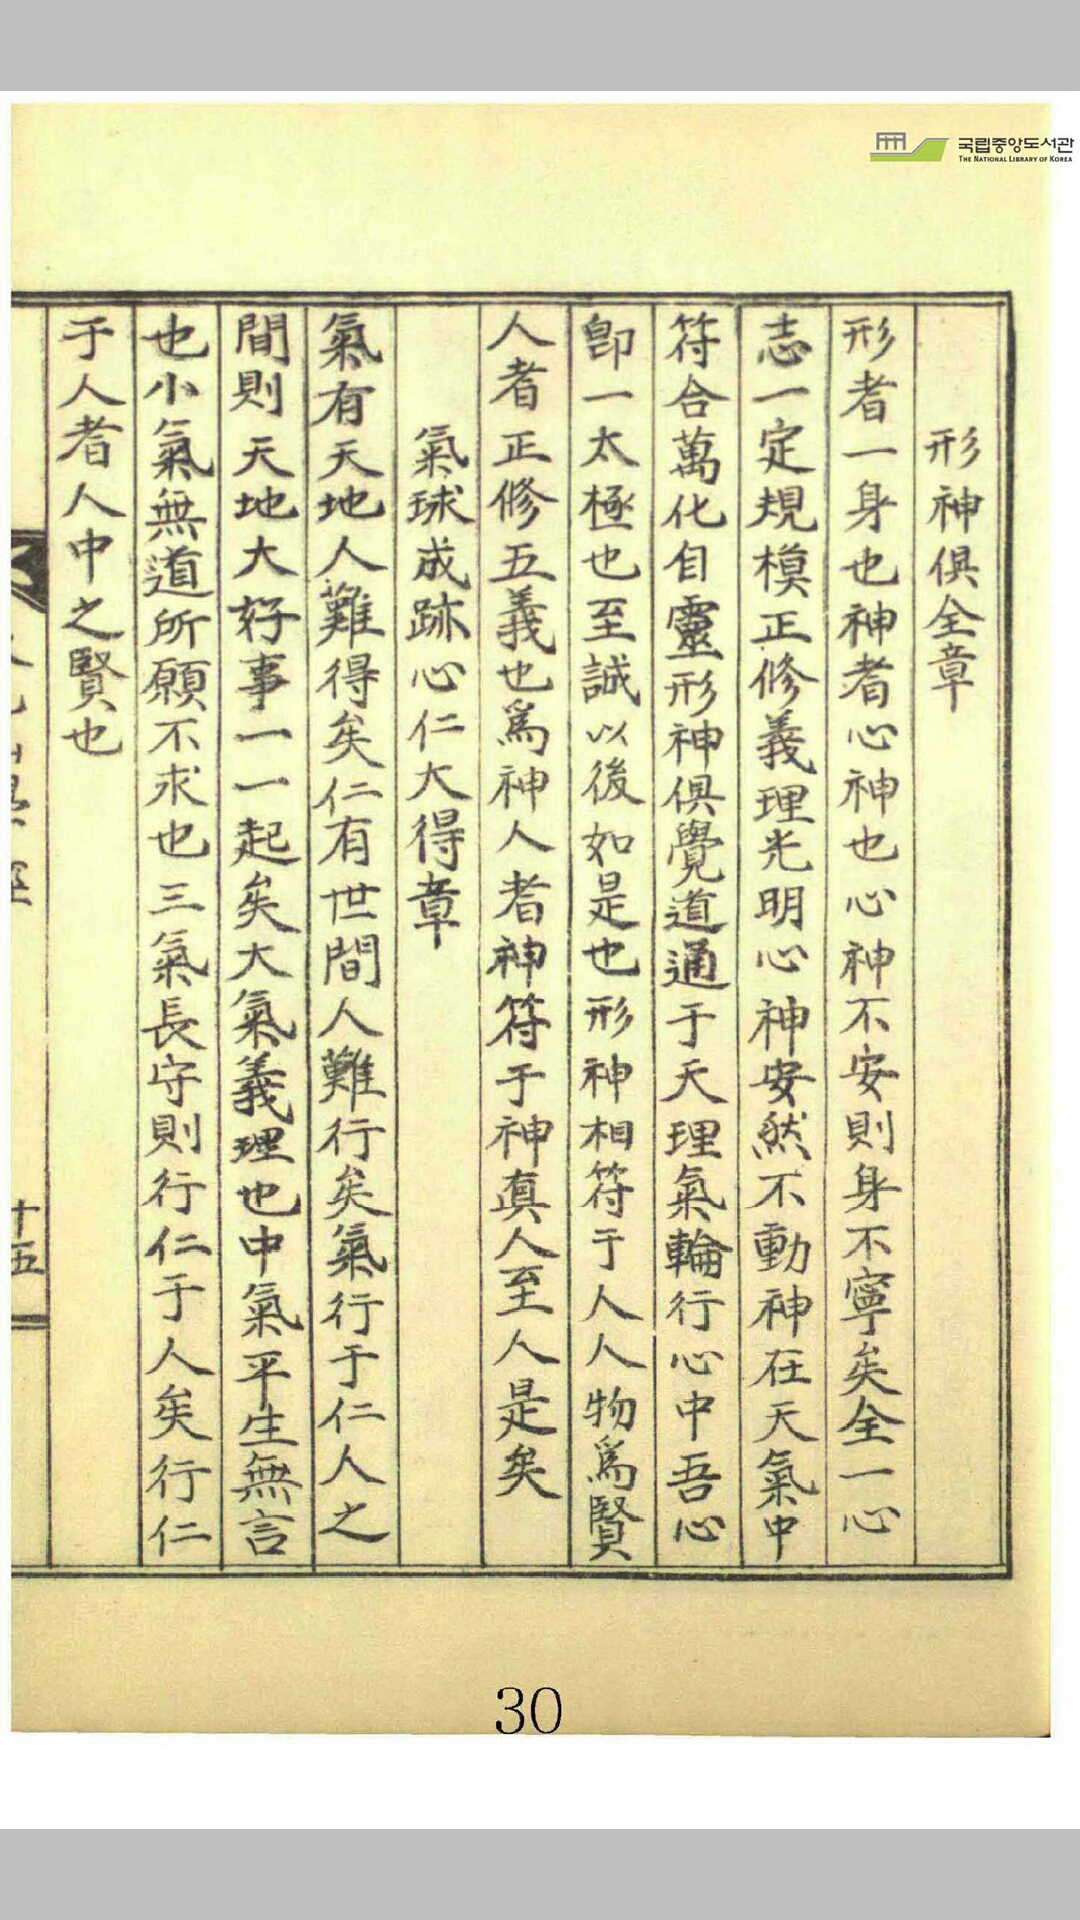 국립중앙도서관
THE NATIONAL LIBRARY OF KOREA
形神俱全章
形者一身也神者心神也心神不安則身不寧矣全一心
志一定規模正修義理光明心神安然不動神在天氣中
符合萬化自靈形神俱覺道通于天理氣輪行心中吾心
卽一太極也至誠以後如是也形神相符于人人物爲賢
人者正修五義也爲神人者神符于神眞人至人是矣
氣球成跡心仁大得章
氣有天地人難得矣仁有世間人難行矣氣行于仁人之
間則天地大好事一一起矣大氣義理也中氣平生無言
也小氣無道所願不求也三氣長守則行仁于人矣行仁
于人者人中之賢也
十五
30